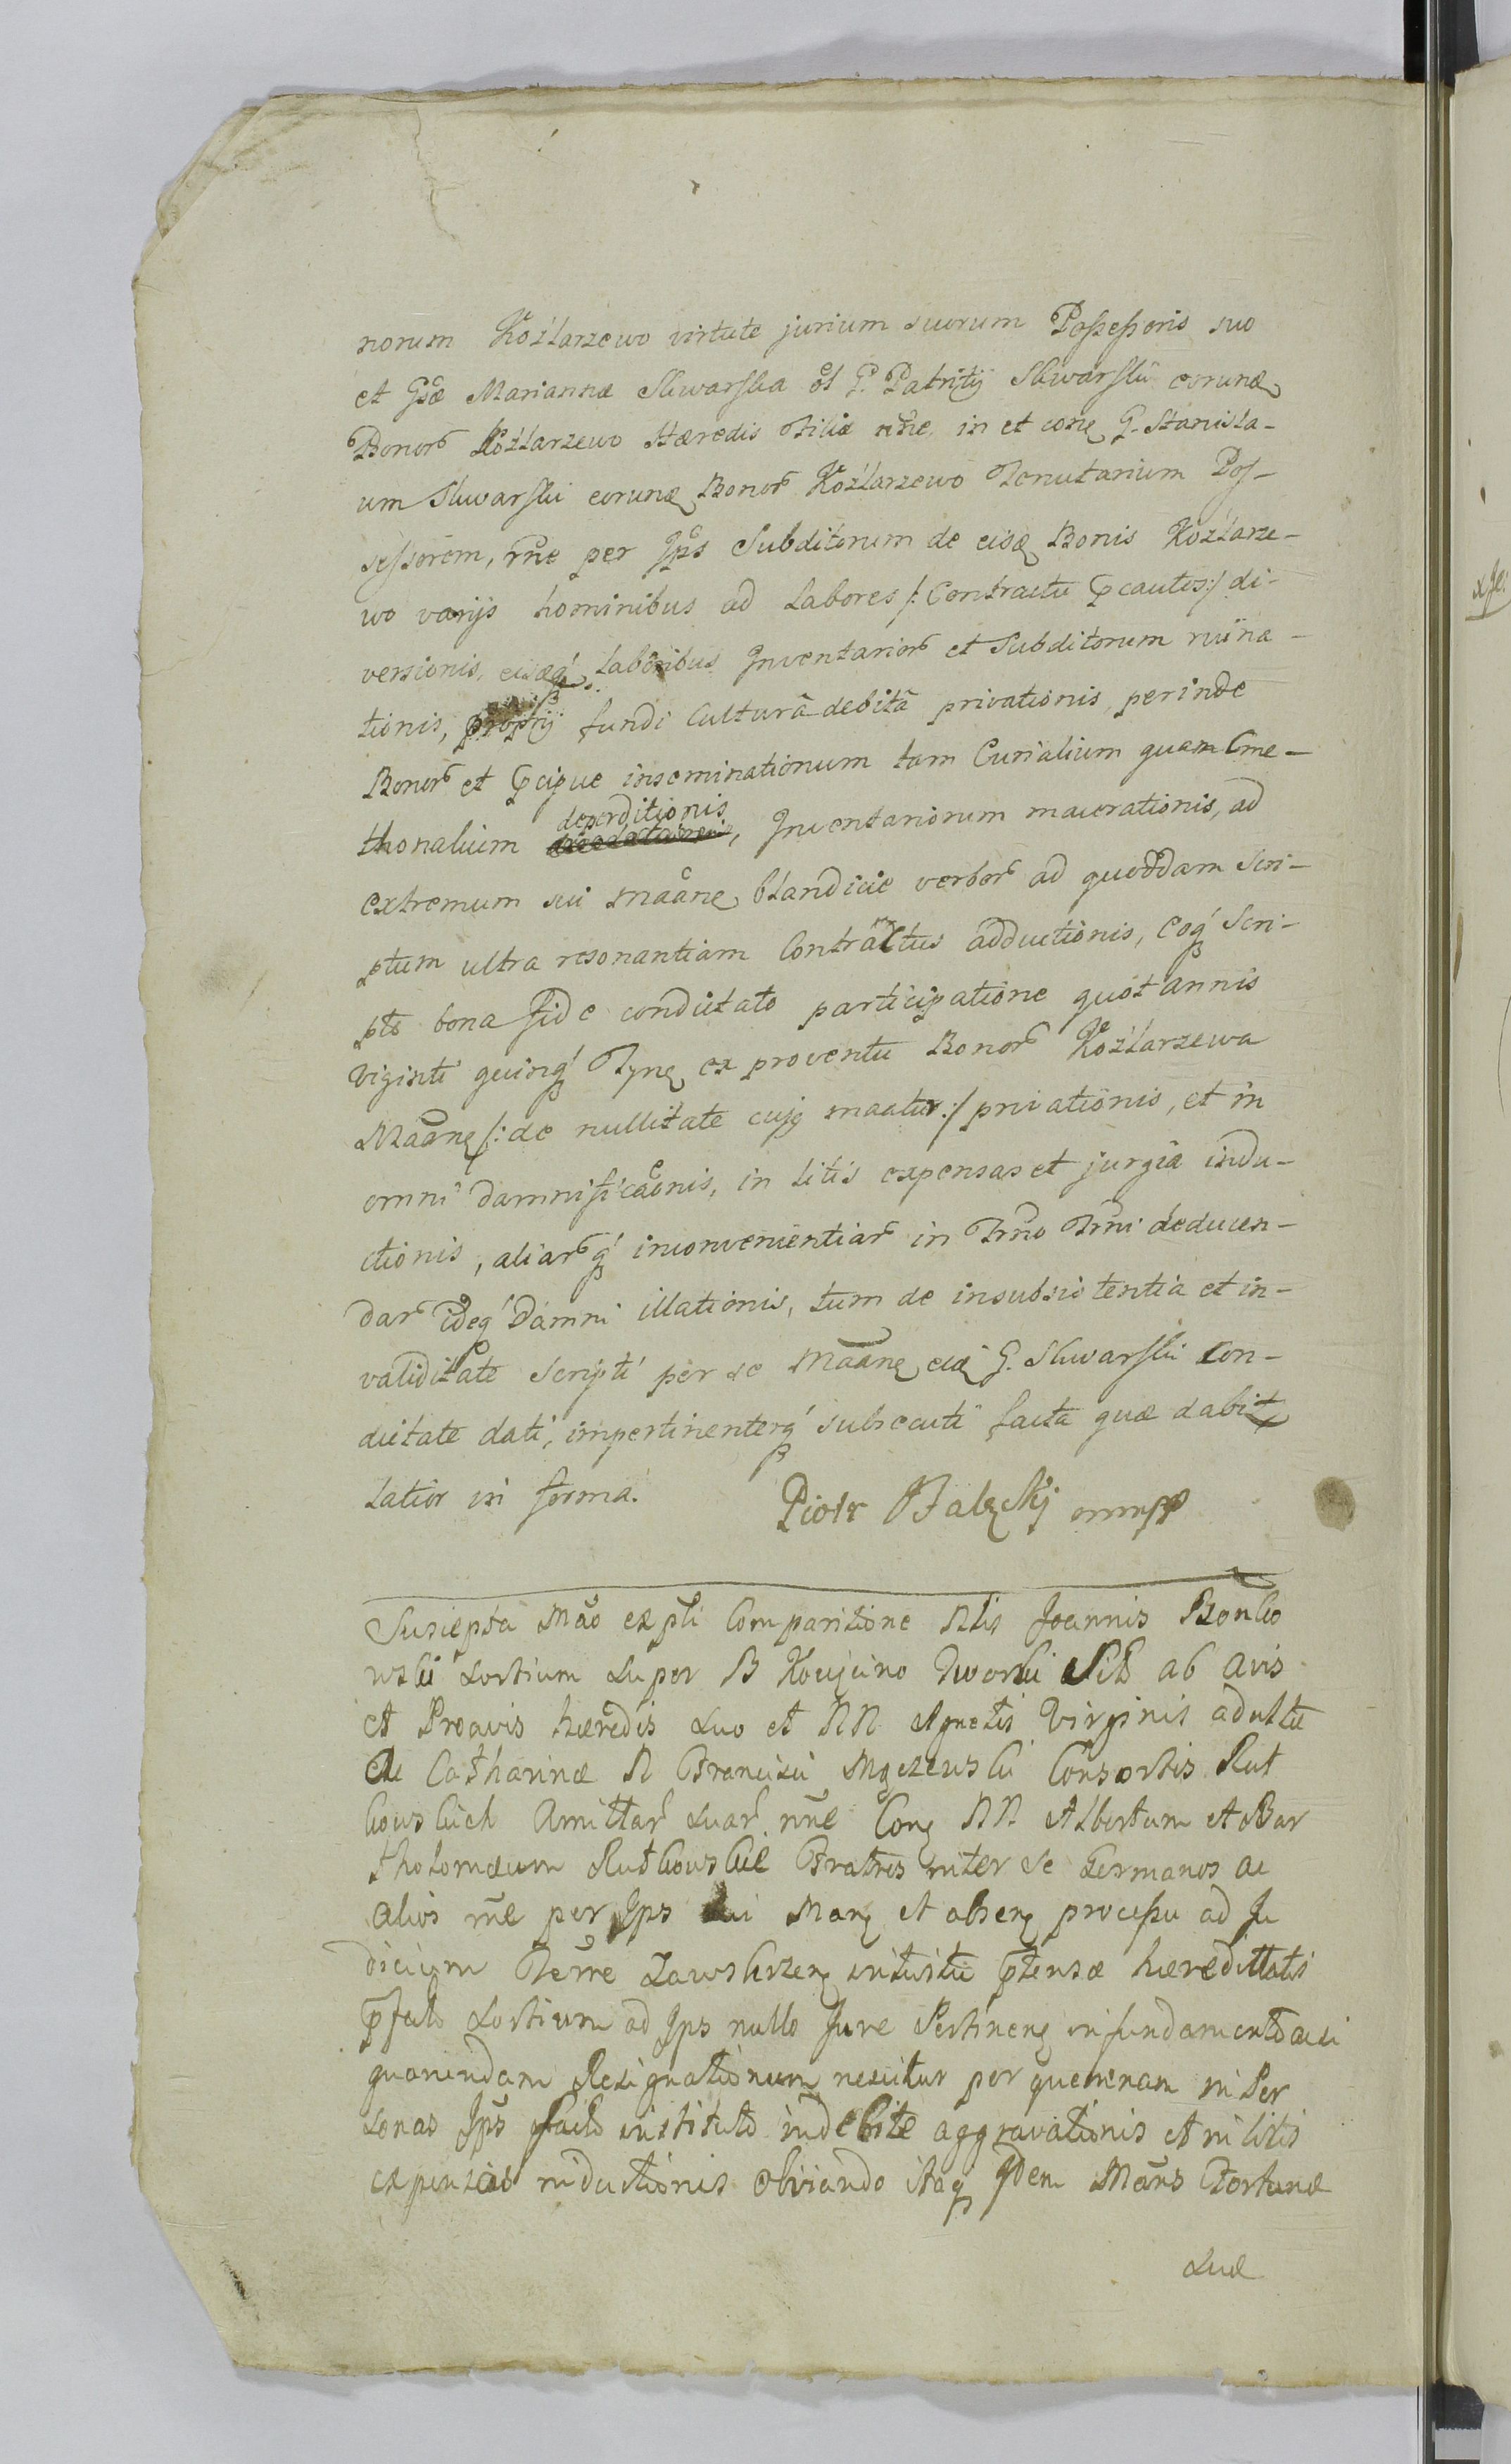 norum Koźlarzewo virtute jurium suorum Possessoris suo
et Gsæ Mariannæ Skwarska ol G. Patritij Skwarski eorundę
Bonorͬ Koźlarzewo Hæredis Filiæ nñe. in et conę G. Stanisla-
um Skwarski eorundę Bonorͬ Koźlarzewo Tenutarium Pos-
sessorem, rñe per Ips Subditorum de eisdę Bonis Koźlarze-
wo varijs hominibus ad Labores /: Contractu p̄cautos :/ di-
versionis, eisdęq́ Laboribus Inventariorͬ et Subditorum ruina-
tionis, fundi Culturâ debitâ privationis, perinde
Bonorͬ et p̄cipue inseminationum tam Curialium quam Cme-
thonalium deperditionis, Inventariorum macerationis, ad
extremum sui Maãnę blandicie verborͬ ad quoddam Scri-
ptum ultra resonantiam Contractus adductionis, Eoq́ Scri-
pto bona fide condictato participatione quot annis
viginti quinq́ Tynę ex proventu Bonorͬ Koźlarzewa
Maãnę /: de nullitate cujq maatur :/ privationis, et in
omni damnificãonis, in litis expensas et jurgia indu-
ctionis, aliarͬq́ inconvenientiarͬ in Trño Trñi deducen-
darͬ ideq́ Damni illationis, tum de insubsistentia et in-
validitate scripti per se Maãnę eidę G. Skwarski Con-
dictate dati, impertinenterq́ subsecuti facta quæ dabit
Latior in forma. Piotr Załęskj mmpp
Suscepta Mão ex pti Comparitione Nlis Joannis Bonko
wski Sortium Super B Kocięcino Dworki Sit ab avis
et Proavis hæredis Suo et NN Agnetis Virginis adultæ
Ac Catharinæ N Francisci Mgczewski Consortis Rut
kowskich Amittarͬ Suarͬ nñe Conę NN Albertum et Bar
tholomæum Rutkowskie Fratres inter se Germanos ac
alios rñe per Ips Sui Manę et absenę processu ad Ju
dicium Terre Zawskrzenę intuitu p̄tensæ hæredittatis
p̄fato Sortium ad Ips nullo Jure Pertinenę infundamento aci
quarundam Resignationum nescitur per quemnam in Per
sonas Ips facto instituto indebite aggravationis et in litis
expensas inductionis obviando itaq Idem Mans Fortunæ
Suæ